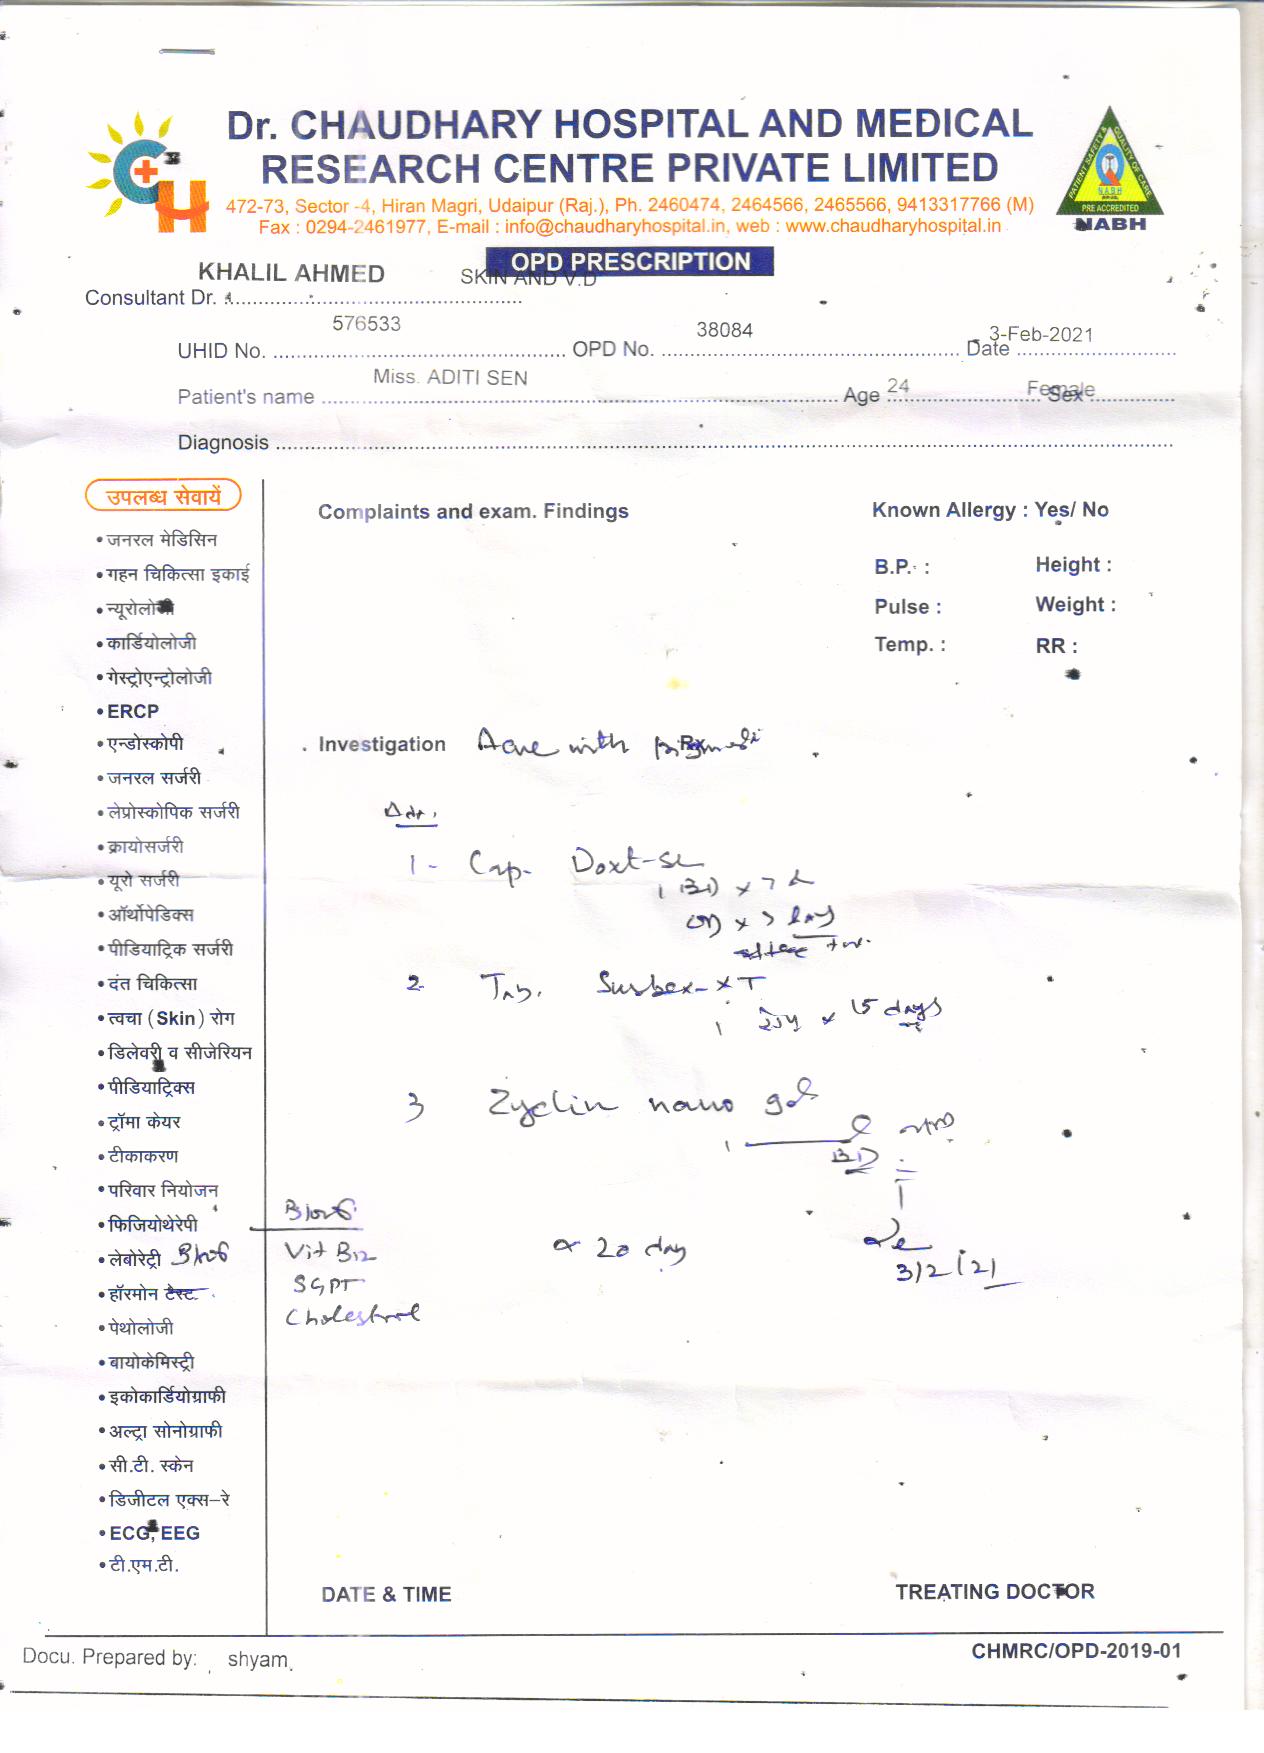 Dr. CHAUDHARY HOSPITAL AND MEDICAL
RESEARCH CENTRE PRIVATE LIMITED
472-73, Sector -4, Hiran Magri, Udaipur (Raj.), Ph. 2460474, 2464566, 2465566, 9413317766 (M)
Fax : 0294-2461977, E-mail : info@chaudharyhospital.in, web : www.chaudharyhospital.in
PATIENT SAFETY & QUALITY OF CARE
NABH
PRE ACCREDITED
NABH
OPD PRESCRIPTION
KHALIL AHMED SKIN AND V.D
Consultant Dr.
576533 38084 3-Feb-2021
UHID No. OPD No. Date
Miss. ADITI SEN 24 Female
Patient's name Age Sex
Diagnosis
उपलब्ध सेवायें
• जनरल मेडिसिन
• गहन चिकित्सा इकाई
• न्यूरोलोजी
• कार्डियोलोजी
• गेस्ट्रोएन्ट्रोलोजी
• ERCP
• एन्डोस्कोपी
• जनरल सर्जरी
• लेप्रोस्कोपिक सर्जरी
• क्रायोसर्जरी
• यूरो सर्जरी
• ऑर्थोपेडिक्स
• पीडियाट्रिक सर्जरी
• दंत चिकित्सा
• त्वचा (Skin) रोग
• डिलेवरी व सीजेरियन
• पीडियाट्रिक्स
• ट्रॉमा केयर
• टीकाकरण
• परिवार नियोजन
• फिजियोथेरेपी
• लेबोरेट्री
• हॉरमोन टेस्ट
• पेथोलोजी
• बायोकेमिस्ट्री
• इकोकार्डियोग्राफी
• अल्ट्रा सोनोग्राफी
• सी.टी. स्केन
• डिजीटल एक्स-रे
• ECG, EEG
• टी.एम.टी.
Complaints and exam. Findings
Known Allergy : Yes/ No
B.P. : Height :
Pulse : Weight :
Temp. : RR :
Investigation Acne with
Rx
1 - Cap.
1 BD x 7 d
OD x
2- Tab. Surbex-XT
1 x 15 days
3 Zyclin nano gel
1
BD
Vit B12
SGPT
Cholestrol
20 day
3/2/21
DATE & TIME
TREATING DOCTOR
Docu. Prepared by: shyam.
CHMRC/OPD-2019-01